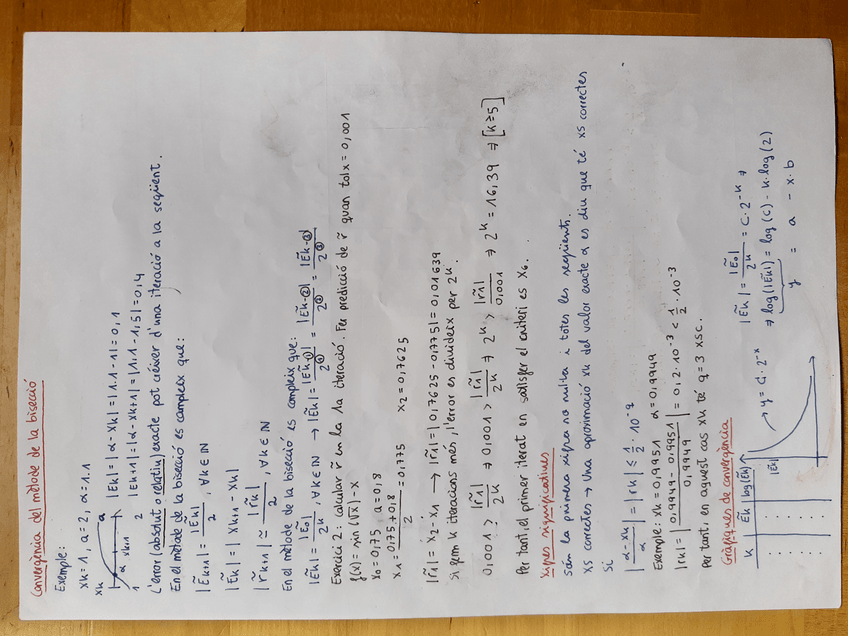 Convergència del mètode de la bisecció
Exemple:
xk=1, a=2, α=1.1
xk a |Ek|=|α-xk|=|1.1-1|=0,1
1 α xk+1 2 |Ek+1|=|α-xk+1|=|1.1-1,5|=0,4
L'error (absolut o relatiu) exacte pot créixer d'una iteració a la següent.
En el mètode de la bisecció es compleix que:
|Ẽk+1| = |Ẽk| / 2, ∀k∈ℕ
|Ẽk| = |xk+1 - xk|
|r̃k+1| ≃ |r̃k| / 2, ∀k∈ℕ
En el mètode de la bisecció es compleix que:
|Ẽk| = |Ẽ0| / 2^k, ∀k∈ℕ → |Ẽk| = |Ẽk-①| / 2^① = |Ẽk-②| / 2^② = |Ẽk-③| / 2^③
Exercici 2: calcular r̃ en la 1a iteració. Fer predicció de r̃ quan tolx = 0,001
f(x) = sin(√x) - x
x0 = 0,75 a = 0,8
x1 = 0,75+0,8 / 2 = 0,775 x2 = 0,7625
|r̃1| = x2 - x1 → |r̃1| = |0,7625 - 0,775| = 0,01639
Si fem k iteracions més, l'error es divideix per 2^k.
0,001 > |r̃1| / 2^k ⇒ 0,001 > |r̃1| / 2^k ⇒ 2^k > |r̃1| / 0,001 ⇒ 2^k = 16,39 ⇒ [k≥5]
Per tant, el primer iterat en satisfer el criteri es x6.
Xifres significatives
són la primera xifra no nul·la i totes les següents.
XS correctes → Una aproximació xk del valor exacte α es diu que té XS correctes
Si
|α-xk / α| = |rk| ≤ 1/2 · 10^-q
Exemple: xk = 0,9951 α=0,9949
|rk| = |0.9949 - 0.9951 / 0,9949| = 0,2·10^-3 < 1/2 · 10^-3
Per tant, en aquest cas xk té q=3 xsc.
Gràfiques de convergència
k Ẽk log(Ẽk) |Ẽk| → y = C·2^-x
|Ẽk| = |Ẽ0| / 2^k = C·2^-k ⇒
⇒ log(|Ẽk|) = log(C) - k·log(2)
y = a - x·b